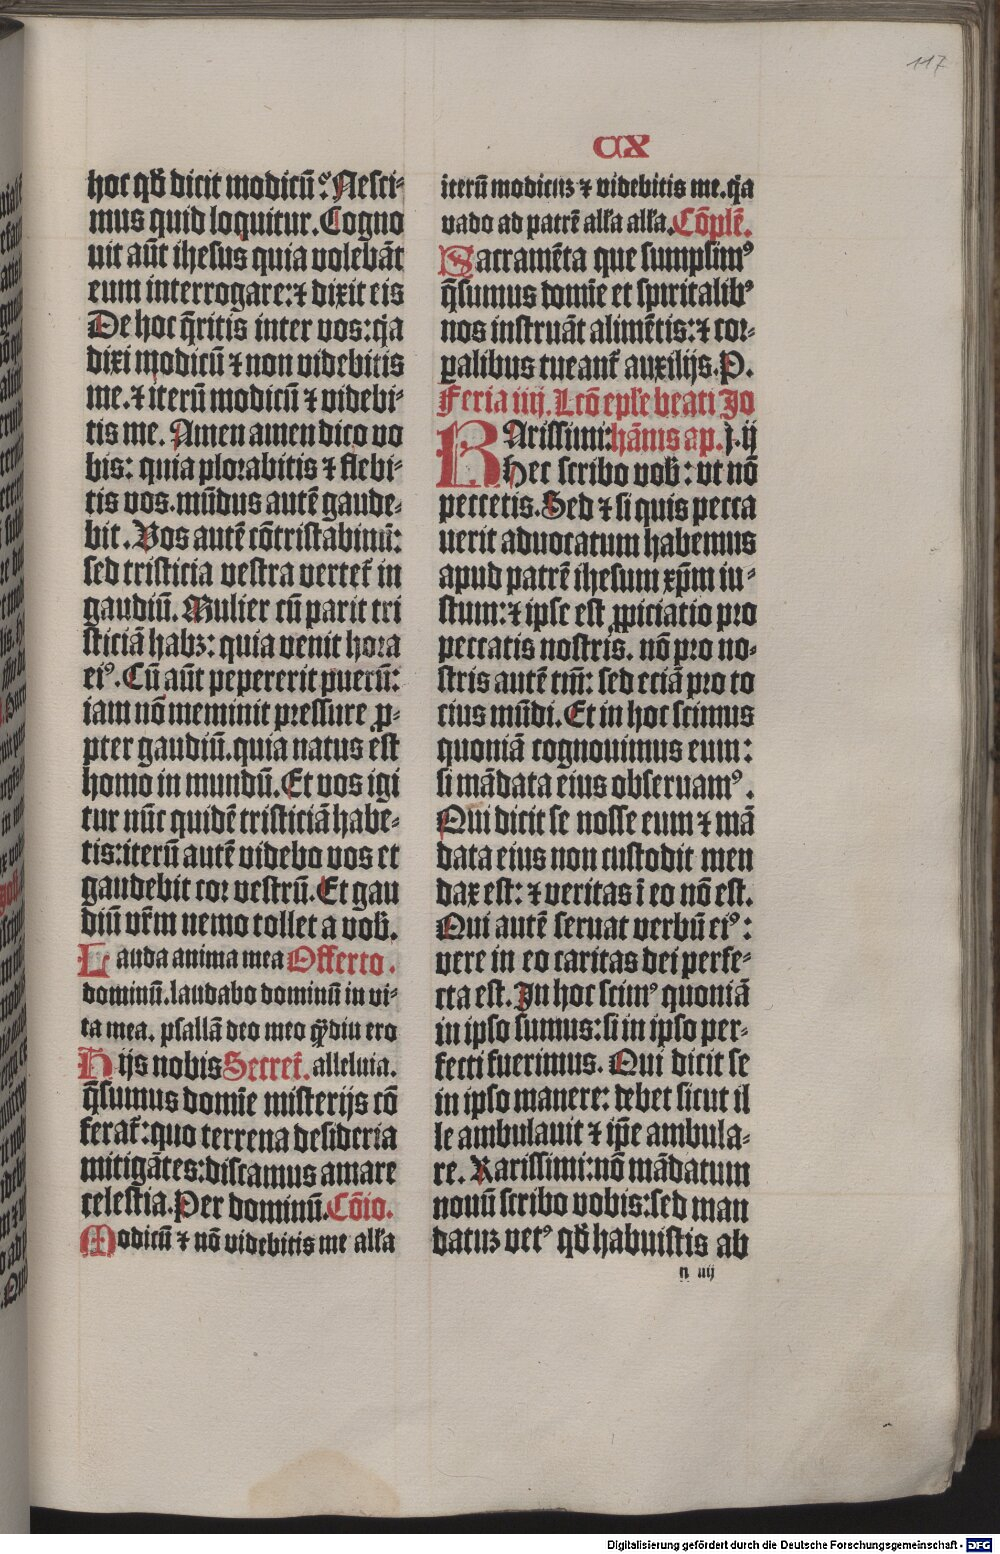 117
CX
hoc qđ dicit modicū? Nesci-
mus quid loquitur. Cogno
uit aūt ihesus quia volebāt
eum interrogare: ⁊ dixit eis
De hoc q̄ritis inter vos: q̇a
dixi modicū ⁊ non videbitis
me. ⁊ iterū modicū ⁊ videbi-
tis me. Amen amen dico vo
bis: quia plorabitis ⁊ flebi-
tis vos. mūdus autē gaude-
bit. Vos autē cōtristabimī:
sed tristicia vestra vertet᷑ in
gaudiū. Mulier cū parit tri
sticiā habꝫ: quia venit hora
eiꝰ. Cū aūt pepererit puerū:
iam nō meminit pressure ꝓ-
pter gaudiū. quia natus est
homo in mundū. Et vos igi
tur nūc quidē tristiciā habe-
tis: iterū autē videbo vos et
gaudebit cor vestrū. Et gau
diū vr̄m nemo tollet a vob̄.
Lauda anima mea Offerto.
dominū. laudabo dominū in vi-
ta mea. psallā deo meo q̄diu ero
Hijs nobis Secret᷑. alleluia.
q̄sumus domīe misterijs cō
ferat᷑: quo terrena desideria
mitigātes: discamus amare
celestia. Per dominū. Cōio.
Modicū ⁊ nō videbitis me alła
iterū modicuꝫ ⁊ videbitis me. q̇a
vado ad patrē alła alła. Cōplē.
Sacramēta que sumpsimꝰ
q̄sumus domīe et spiritalibꝰ
nos instruāt alimētis: ⁊ cor-
ꝑalibus tueant᷑ auxilijs. P.
Feria iiij. Lcō epłe beati Jo
KArissimi: hānis ap. j. ij
Hec scribo vob̄: vt nō
peccetis. Sed ⁊ si quis pecca
uerit aduocatum habemus
apud patrē ihesum xp̄m iu-
stum: ⁊ ipse est ꝓpiciatio pro
peccatis nostris. nō pro no-
stris autē tm̄: sed eciā pro to
cius mūdi. Et in hoc scimus
quoniā cognouimus eum:
si mādata eius obseruamꝰ.
Qui dicit se nosse eum ⁊ mā
data eius non custodit men
dax est: ⁊ veritas ī eo nō est.
Qui autē seruat verbū eiꝰ:
vere in eo caritas dei perfe-
cta est. In hoc scimꝰ quoniā
in ipso sumus: si in ipso per-
fecti fuerimus. Qui dicit se
in ipso manere: debet sicut il
le ambulauit ⁊ ip̄e ambula-
re. Karissimi: nō mādatum
nouū scribo vobis: sed man
datuꝫ vetꝰ qđ habuistis ab
n iiij
Digitalisierung gefördert durch die Deutsche Forschungsgemeinschaft - DFG